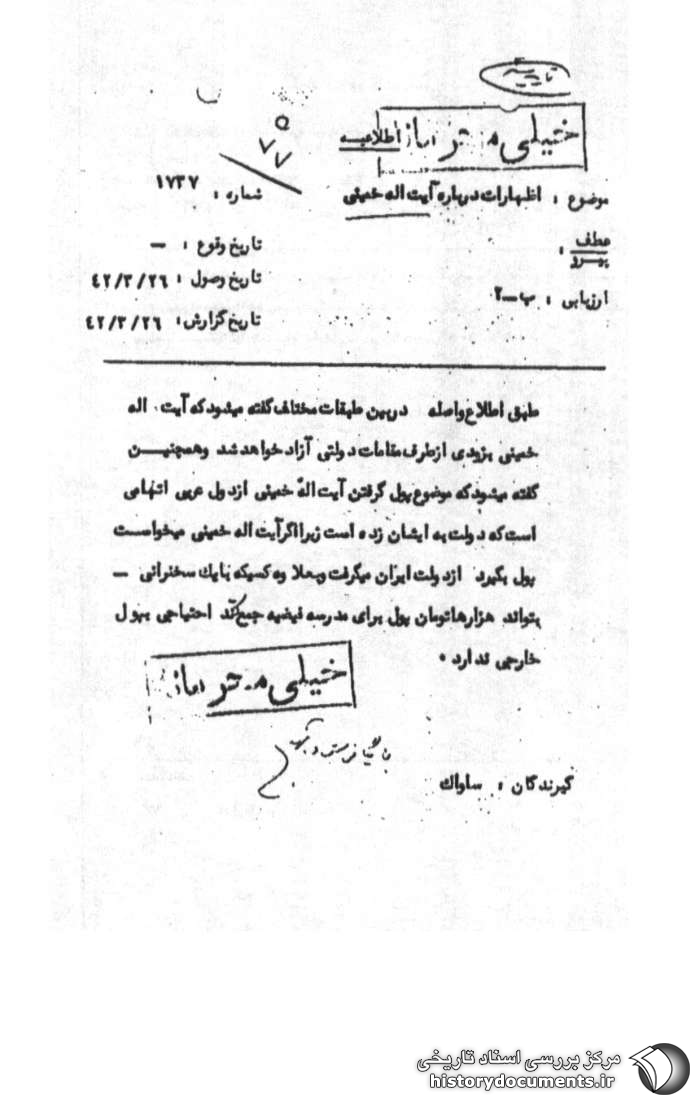 خیلی محرمانه
اطلاعیه
۵
۷۷
موضوع : اظهارات درباره آیت اله خمینی
شماره : ۱۷۳۷
عطف
پیرو :
تاریخ وقوع : —
تاریخ وصول : ٤٢/٣/٢٦
ارزیابی : ب-۲
تاریخ گزارش : ٤٢/٣/٢٦
طبق اطلاع واصله در بین طبقات مختلف گفته میشود که آیت اله
خمینی بزودی از طرف مقامات دولتی آزاد خواهد شد و همچنین
گفته میشود که موضوع پول گرفتن آیت اله خمینی از دول عربی اتهامی
است که دولت به ایشان زده است زیرا اگر آیت اله خمینی میخواست
پول بگیرد از دولت ایران میگرفت وبعلاوه کسیکه بایك سخنرانی —
بتواند هزارها تومان پول برای مدرسه فیضیه جمع کند احتیاجی بپول
خارجی ندارد .
خیلی محرمانه
گیرندگان : ساواك
مرکز بررسی اسناد تاریخی
historydocuments.ir